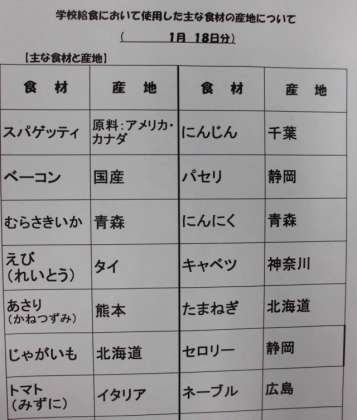 学校給食において使用した主な食材の産地について
( 1月 18日分)
【主な食材と産地】
食 材 産 地 食 材 産 地
スパゲッティ 原料:アメリカ・カナダ にんじん 千葉
ベーコン 国産 パセリ 静岡
むらさきいか 青森 にんにく 青森
えび(れいとう) タイ キャベツ 神奈川
あさり(かねつずみ) 熊本 たまねぎ 北海道
じゃがいも 北海道 セロリー 静岡
トマト(みずに) イタリア ネーブル 広島